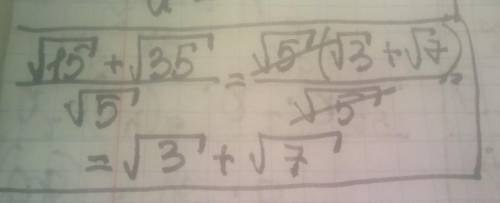 (√15 + √35) / √5 = √5(√3 + √7) / √5
= √3 + √7